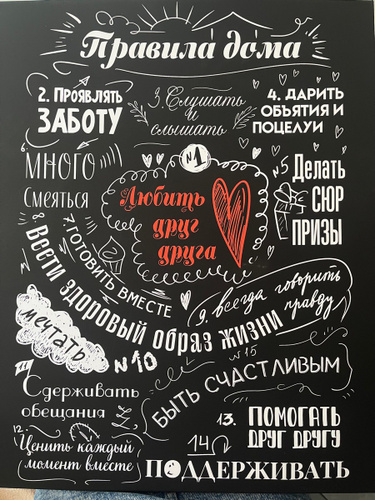 Правила дома
№1
Любить
друг
друга
2. Проявлять
ЗАБОТУ
3. Слушать
и
слышать
4. ДАРИТЬ
ОБЪЯТИЯ И
ПОЦЕЛУИ
№5 Делать
СЮР
ПРИЗЫ
МНОГО
Смеяться
7 ГОТОВИТЬ ВМЕСТЕ
8 Вести здоровый образ жизни
9. всегда говорить
правду
№10
мечтать
11
Сдерживать
обещания
12.
Ценить каждый
момент вместе
13. ПОМОГАТЬ
ДРУГ ДРУГУ
14
ПОДДЕРЖИВАТЬ
№15
БЫТЬ СЧАСТЛИВЫМ